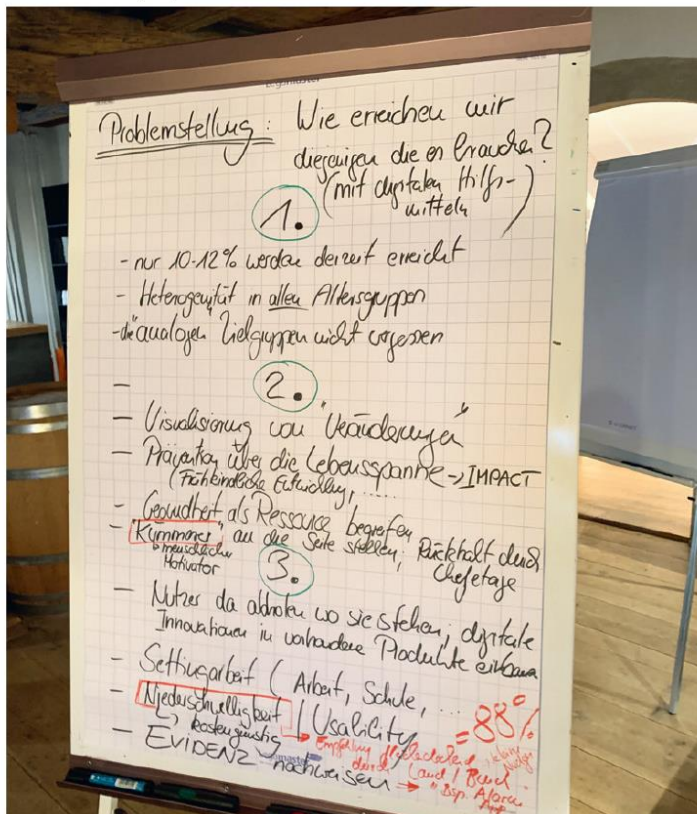 Problemstellung: Wie erreichen wir
diejenigen die es brauchen?
(mit digitalen Hilfs-
mitteln)
1.
- nur 10-12% werden derzeit erreicht
- Heterogenität in allen Altersgruppen
- die "analogen Zielgruppen nicht vergessen
2.
-
- Visualisierung von "Veränderungen"
- Prävention über die Lebensspanne -> IMPACT
(Frühkindliche Entwicklung, .....
- Gesundheit als Ressource begreifen
- "Kümmerer" an die Seite stellen; Rückhalt durch
menschlicher
Motivator
Chefetage
3.
- Nutzer da abholen wo sie stehen; digitale
Innovationen in vorhandene Produkte einbauen
- Settingarbeit (Arbeit, Schule, ...
- Niederschwelligkeit / Usability
= 88%
kostengünstig
Empfehlung
durch Land / Bund
- EVIDENZ nachweisen
-> "Bsp. Alarm